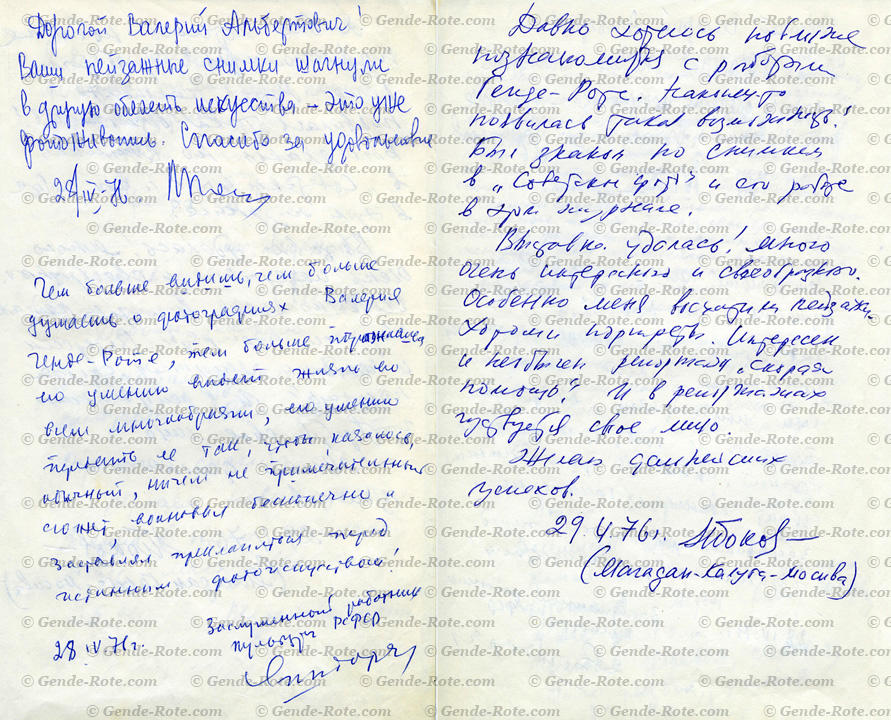 Дорогой Валерий Альбертович!
Ваши пейзажные снимки шагнули
в другую область искусства – это уже
фотоживопись. Спасибо за удовольствие
28/IV 76
Чем больше видишь, чем больше
думаешь о фотографиях Валерия
Генде-Роте, тем больше поражаешься
его умению видеть жизнь во
всем многообразии, его умению
передать ее так, чтобы, казалось,
обычный, ничем не примечательный
сюжет, волновал бесконечно и
заставлял преклоняться перед
истинным фотоискусством!
Заслуженный работник
культуры РСФСР
28 IV 76г.
Давно хотелось поближе
познакомиться с работами
Генде-Роте. Наконец-то
появилась такая возможность!
Был знаком по снимкам
в „Советском фото" и его работе
в этом журнале.
Выставка удалась! Много
очень интересного и своеобразного.
Особенно меня восхитили пейзажи.
Хороши портреты. Интересен
и необычен репортаж „Скорая
помощь". И в репортажах
чувствуется свое лицо.
Желаю дальнейших
успехов.
29.4.76г.
(Магадан-Калуга-Москва)
© Gende-Rote.com